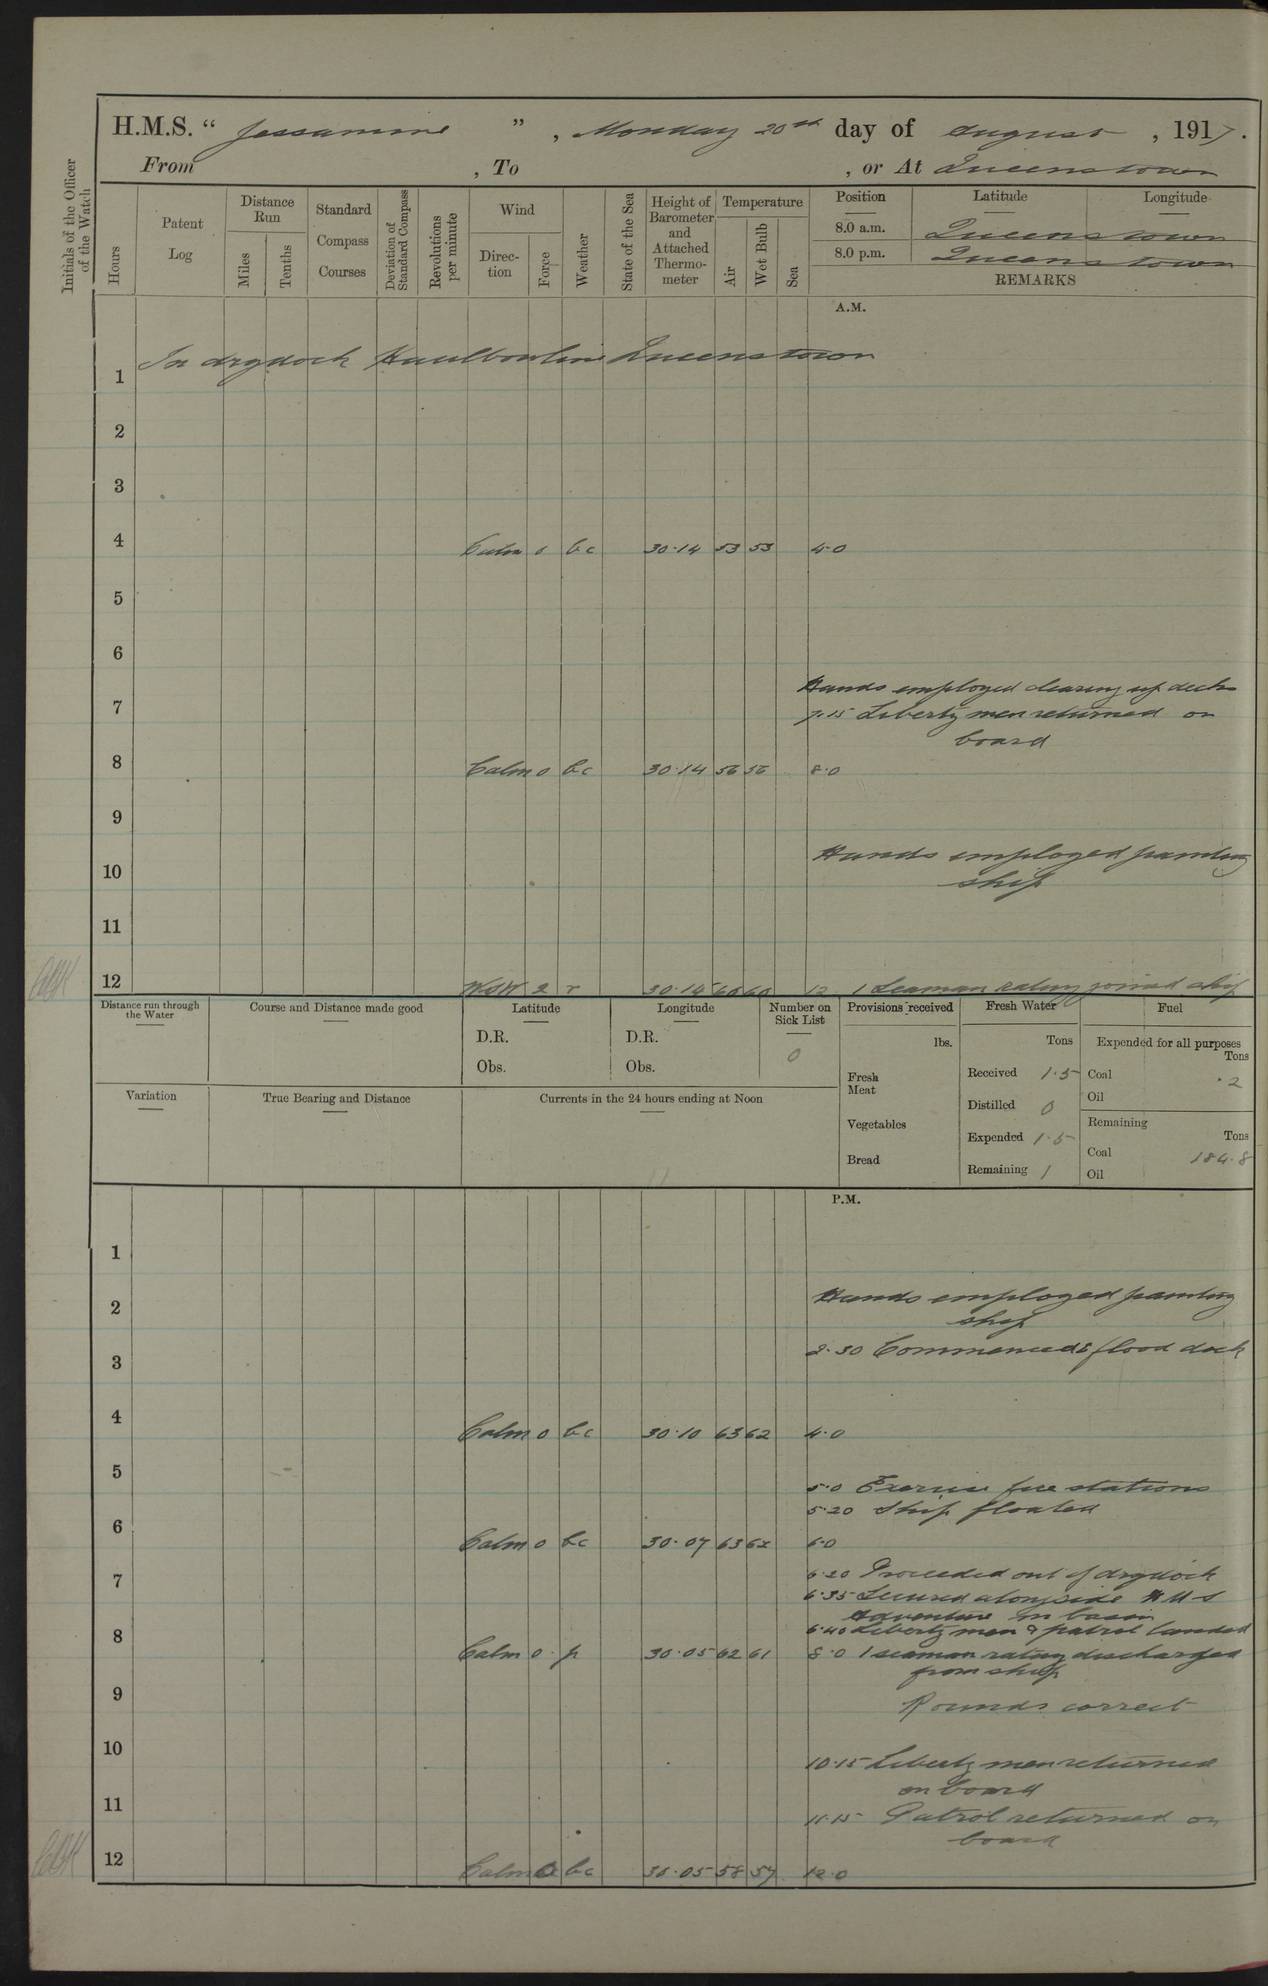 H.M.S. “ Jessamine ” , Monday 20th day of August , 1917.
From , To , or At Queenstown
Initials of the Officer of the Watch
Hours
Patent Log
Distance Run
Miles
Tenths
Standard Compass Courses
Deviation of Standard Compass
Revolutions per minute
Wind
Direction
Force
Weather
State of the Sea
Height of Barometer and Attached Thermometer
Temperature
Air
Wet Bulb
Sea
Position Latitude Longitude
8.0 a.m. Queenstown
8.0 p.m. Queenstown
REMARKS
A.M.
In drydock Haulbowline Queenstown
1
2
3
4 Calm 0 bc 30.14 53 53 4.0
5
6
Hands employed clearing up decks
7 7.15 Liberty men returned on
board
8 Calm 0 bc 30.14 56 56 8.0
9
Hands employed painting
10 ship
11
12 WSW 2 r 30.14 60 60 12 1 Seaman rating joined ship
Distance run through the Water
Course and Distance made good
Latitude
D.R.
Obs.
Longitude
D.R.
Obs.
Number on Sick List
0
Provisions received
lbs.
Fresh Meat
Vegetables
Bread
Fresh Water
Tons
Received 1.5
Distilled 0
Expended 1.5
Remaining 1
Fuel
Expended for all purposes
Tons
Coal .2
Oil
Remaining
Tons
Coal 184.8
Oil
Variation
True Bearing and Distance
Currents in the 24 hours ending at Noon
P.M.
1
2 Hands employed painting
ship
3 2.30 Commenced to flood dock
4 Calm 0 bc 30.10 63 62 4.0
5
5.0 Exercise fire stations
5.20 Ship floated
6 Calm 0 bc 30.07 63 62 6.0
7 6.20 Proceeded out of drydock
6.35 Secured alongside HMS
Adventure in basin
8 6.40 Liberty men & patrol landed
Calm 0 p 30.05 62 61 8.0 1 seaman rating discharged
from ship
9 Rounds correct
10 10.15 Liberty men returned
on board
11 11.15 Patrol returned on
board
12 Calm 0 bc 30.05 58 57 12.0